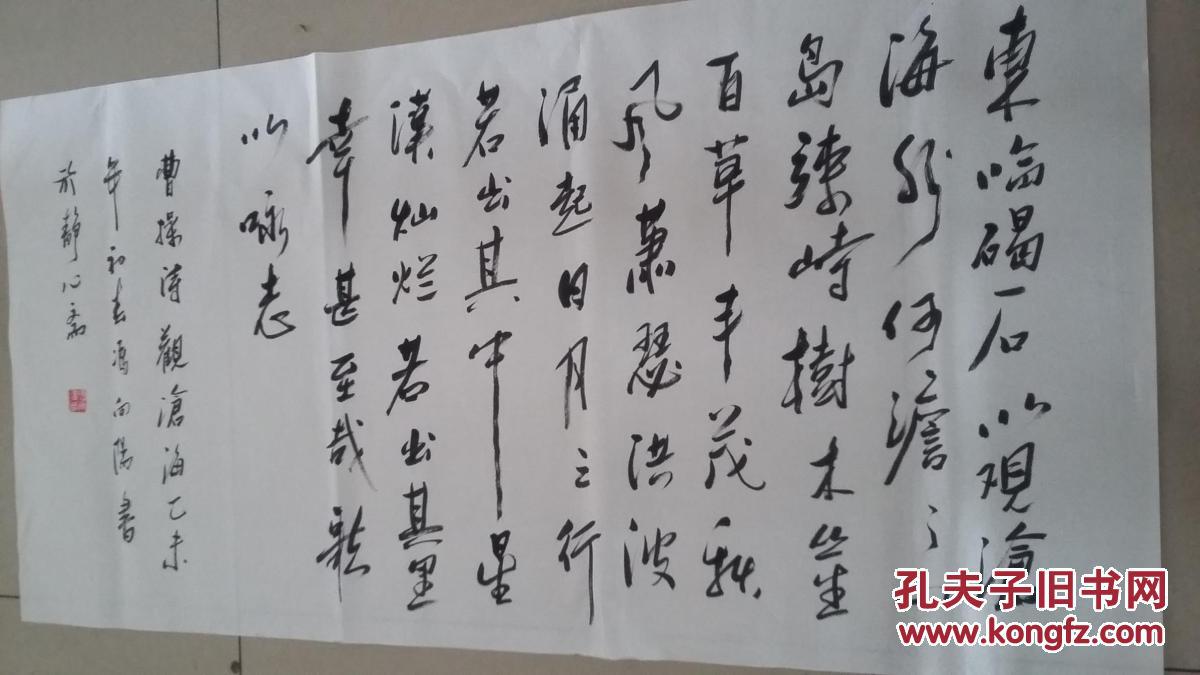 東临碣石以观滄
海水何澹々山
島竦峙樹木丛生
百草丰茂秋
風蕭瑟洪波
涌起日月之行
若出其中星
漢灿烂若出其里
幸甚至哉歌
以咏志
曹操诗觀滄海乙未
年初春冯向陽書
於静心斋
孔夫子旧书网
www.kongfz.com